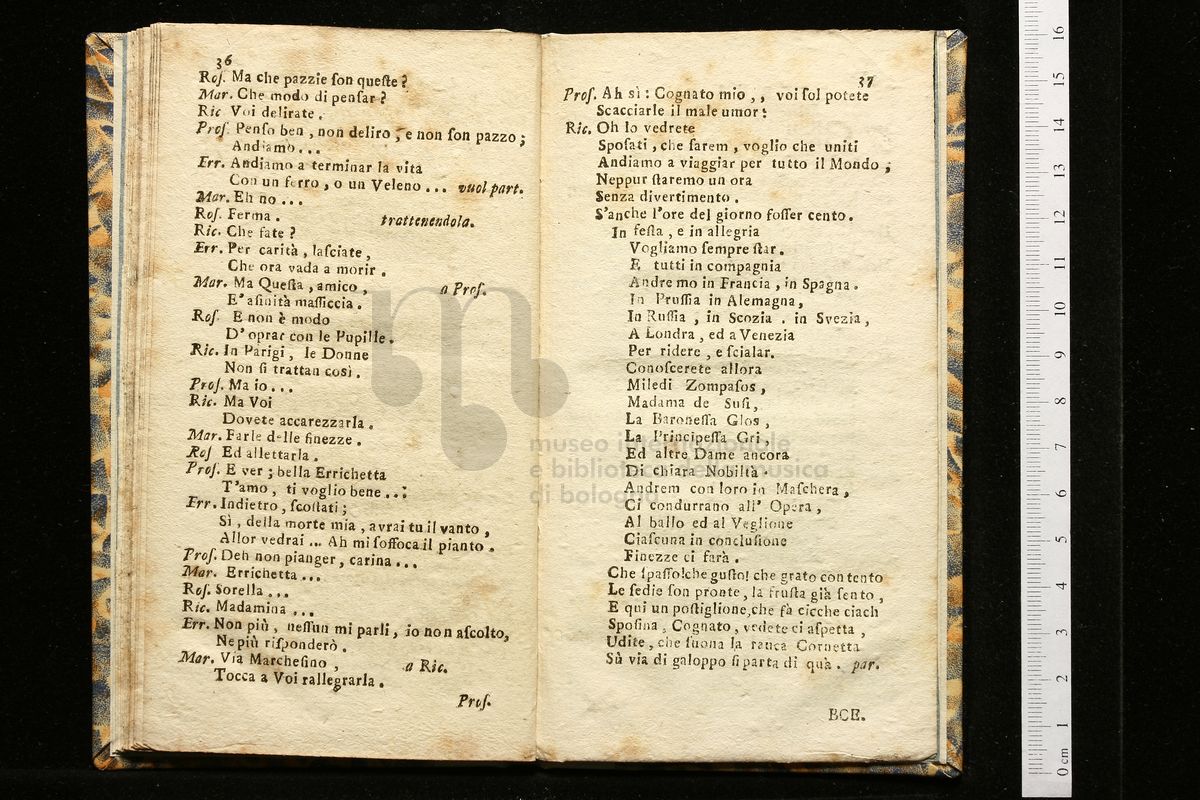 36
Roſ. Ma che pazzie ſon queſte?
Mar. Che modo di penſar?
Ric Voi delirate.
Proſ. Penſo ben, non deliro, e non ſon pazzo;
Andiamo...
Err. Andiamo a terminar la vita
Con un ferro, o un Veleno... vuol part.
Mar. Eh no...
Roſ. Ferma. trattenendola.
Ric. Che fate?
Err. Per carità, laſciate,
Che ora vada a morir.
Mar. Ma Queſta, amico, a Proſ.
E' aſinità maſſiccia.
Roſ. E non è modo
D' oprar con le Pupille.
Ric. In Parigi, le Donne
Non ſi trattan così.
Proſ. Ma io...
Ric. Ma Voi
Dovete accarezzarla.
Mar. Farle delle finezze.
Roſ Ed allettarla.
Proſ. E ver; bella Errichetta
T'amo, ti voglio bene...
Err. Indietro, ſcoſtati;
Sì, della morte mia, avrai tu il vanto,
Allor vedrai ... Ah mi ſoffoca il pianto.
Proſ. Deh non pianger, carina...
Mar. Errichetta...
Roſ. Sorella...
Ric. Madamina...
Err. Non più, neſſun mi parli, io non aſcolto,
Ne più riſponderò.
Mar. Via Marcheſino, a Ric.
Tocca a Voi rallegrarla.
Proſ.
37
Proſ. Ah sì: Cognato mio,, voi ſol potete
Scacciarle il male umor:
Ric. Oh lo vedrete
Spoſati, che ſarem, voglio che uniti
Andiamo a viaggiar per tutto il Mondo;
Neppur ſtaremo un ora
Senza divertimento.
S'anche l'ore del giorno foſſer cento.
In feſta, e in allegria
Vogliamo ſempre ſtar.
E tutti in compagnia
Andremo in Francia, in Spagna.
In Pruſſia in Alemagna,
In Ruſſia, in Scozia. in Svezia,
A Londra, ed a Venezia
Per ridere, e ſcialar.
Conoſcerete allora
Miledi Zompaſos,
Madama de Suſi,
La Baroneſſa Glos,
La Principeſſa Gri,
Ed altre Dame ancora
Di chiara Nobiltà.
Andrem con loro in Maſchera,
Ci condurrano all' Opera,
Al ballo ed al Veglione
Ciaſcuna in concluſione
Finezze ci farà.
Che ſpaſſo!che guſto! che grato contento
Le ſedie ſon pronte, la fruſta già ſento,
E qui un poſtiglione,che fà cicche ciach
Spoſina, Cognato, vedete ci aſpetta,
Udite, che ſuona la rauca Cornetta
Sù via di galoppo ſi parta di quà. par.
BCE.
museo internazionale
e biblioteca della musica
di bologna
0 cm 1 2 3 4 5 6 7 8 9 10 11 12 13 14 15 16